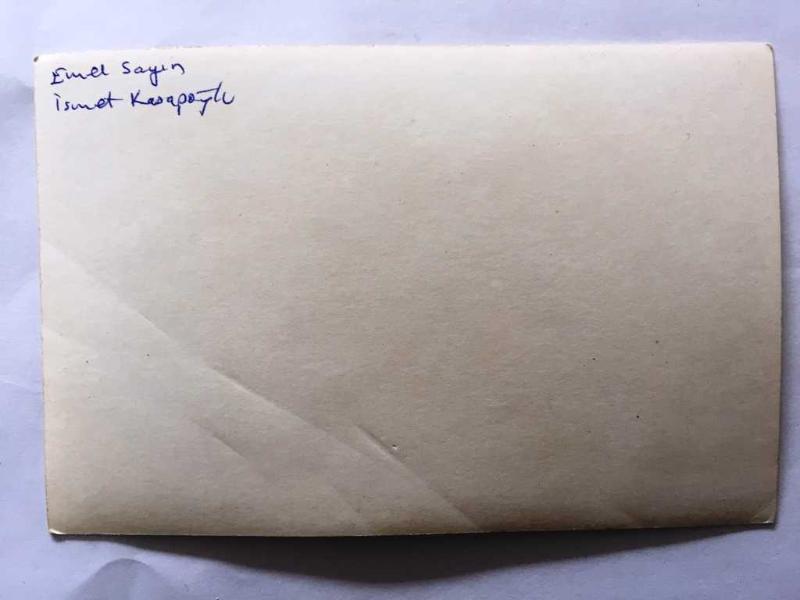 Emel Sayın
İsmet Kasapoğlu